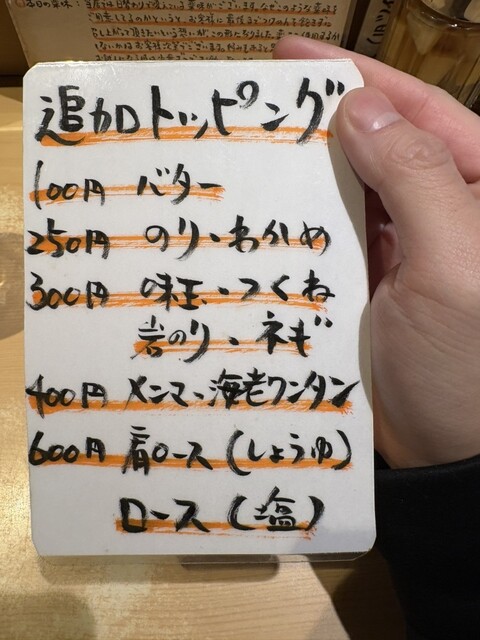 追加トッピング
100円 バター
250円 のり、わかめ
300円 味玉、つくね
岩のり、ネギ
400円 メンマ、海老ワンタン
600円 肩ロース(しょうゆ)
ロース(塩)